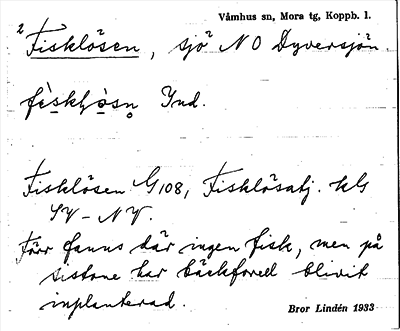 Våmhus sn, Mora tg, Koppb. l.
2 Fisklösen, sjö NO Dyversjön.
Ind.
Fisklösen G108, Fisklösatj. kls
SV-NV.
Förr fanns där ingen fisk, men på
sistone har bäckforell blivit
inplanterad.
Bror Lindén 1933